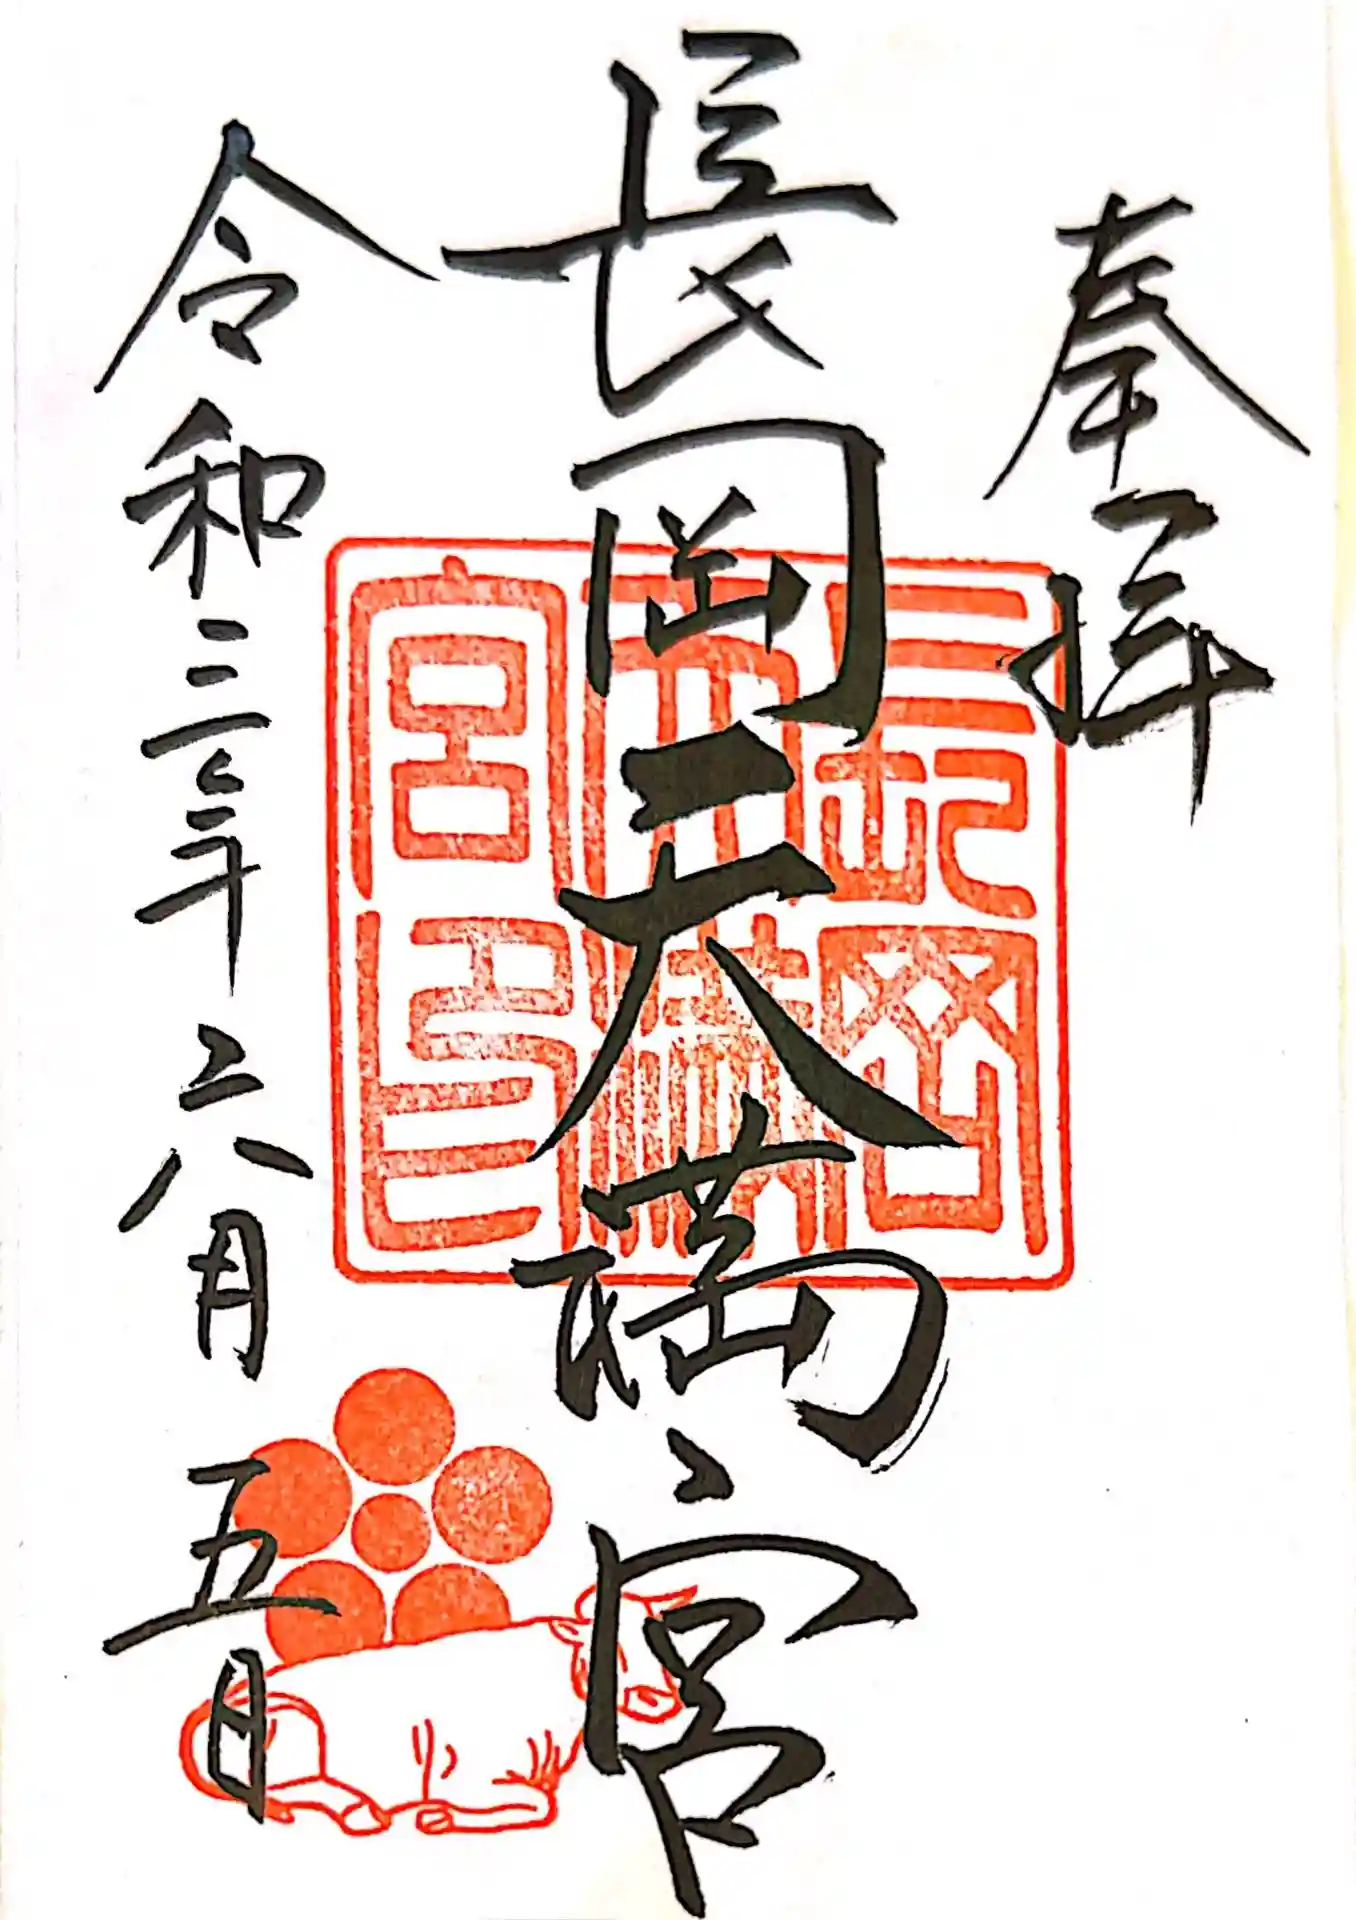 奉拝
長岡天満宮
令和三年六月五日
長岡
天滿
宮印